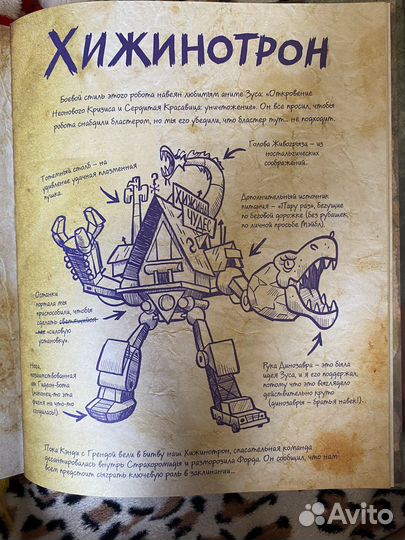 Хижинотрон
Боевой стиль этого робота навеян любимым аниме Зуса: «Откровение
Неонового Кризиса и Сердитая Красавица: уничтожение». Он все просил, чтобы
робота снабдили бластером, но мы его убедили, что бластер тут... не подходит.
Голова Живогрыза – из
ностальгических
соображений.
Тотемный столб – на
удивление удачная плазменная
пушка.
Дополнительный источник
питания – «Пару раз», бегущие
по беговой дорожке (без рубашек,
по личной просьбе Мэйбл).
ХИЖИНА
ЧУДЕС
Останки
портала мы
приспособили, чтобы
сделать
«силовую
установку».
Нога,
позаимствованная
от Гидеон-бота
(наконец-то эта
фигня на что-то
сгодилась!).
Рука Динозавра – это была
идея Зуса, и я его поддержал,
потому что это выглядело
действительно круто
(динозавры – братья навек!).
Пока Кэнди с Грендой вели в битву наш Хижинотрон, спасательная команда
десантировалась внутрь Страхоромиды и разморозила Форда. Он сообщил, что нам
всем предстоит сыграть ключевую роль в заклинании...
Avito